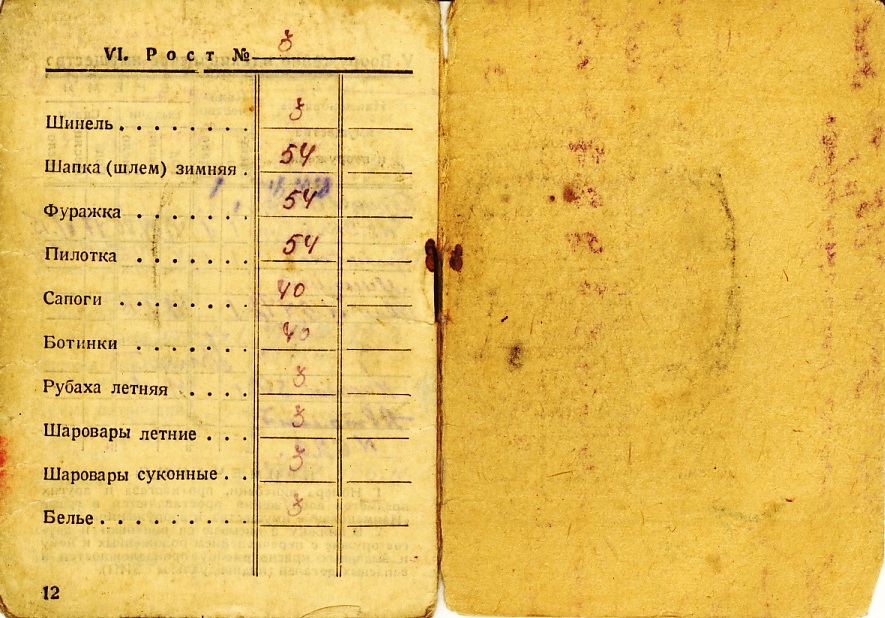 VI. Рост № 3
Шинель . . . . . . . . 3
Шапка (шлем) зимняя . 54
Фуражка . . . . . . . 54
Пилотка . . . . . . . 54
Сапоги . . . . . . . . 40
Ботинки . . . . . . . 40
Рубаха летняя . . . . 3
Шаровары летние . . . 3
Шаровары суконные . . 3
Белье . . . . . . . . . 3
12